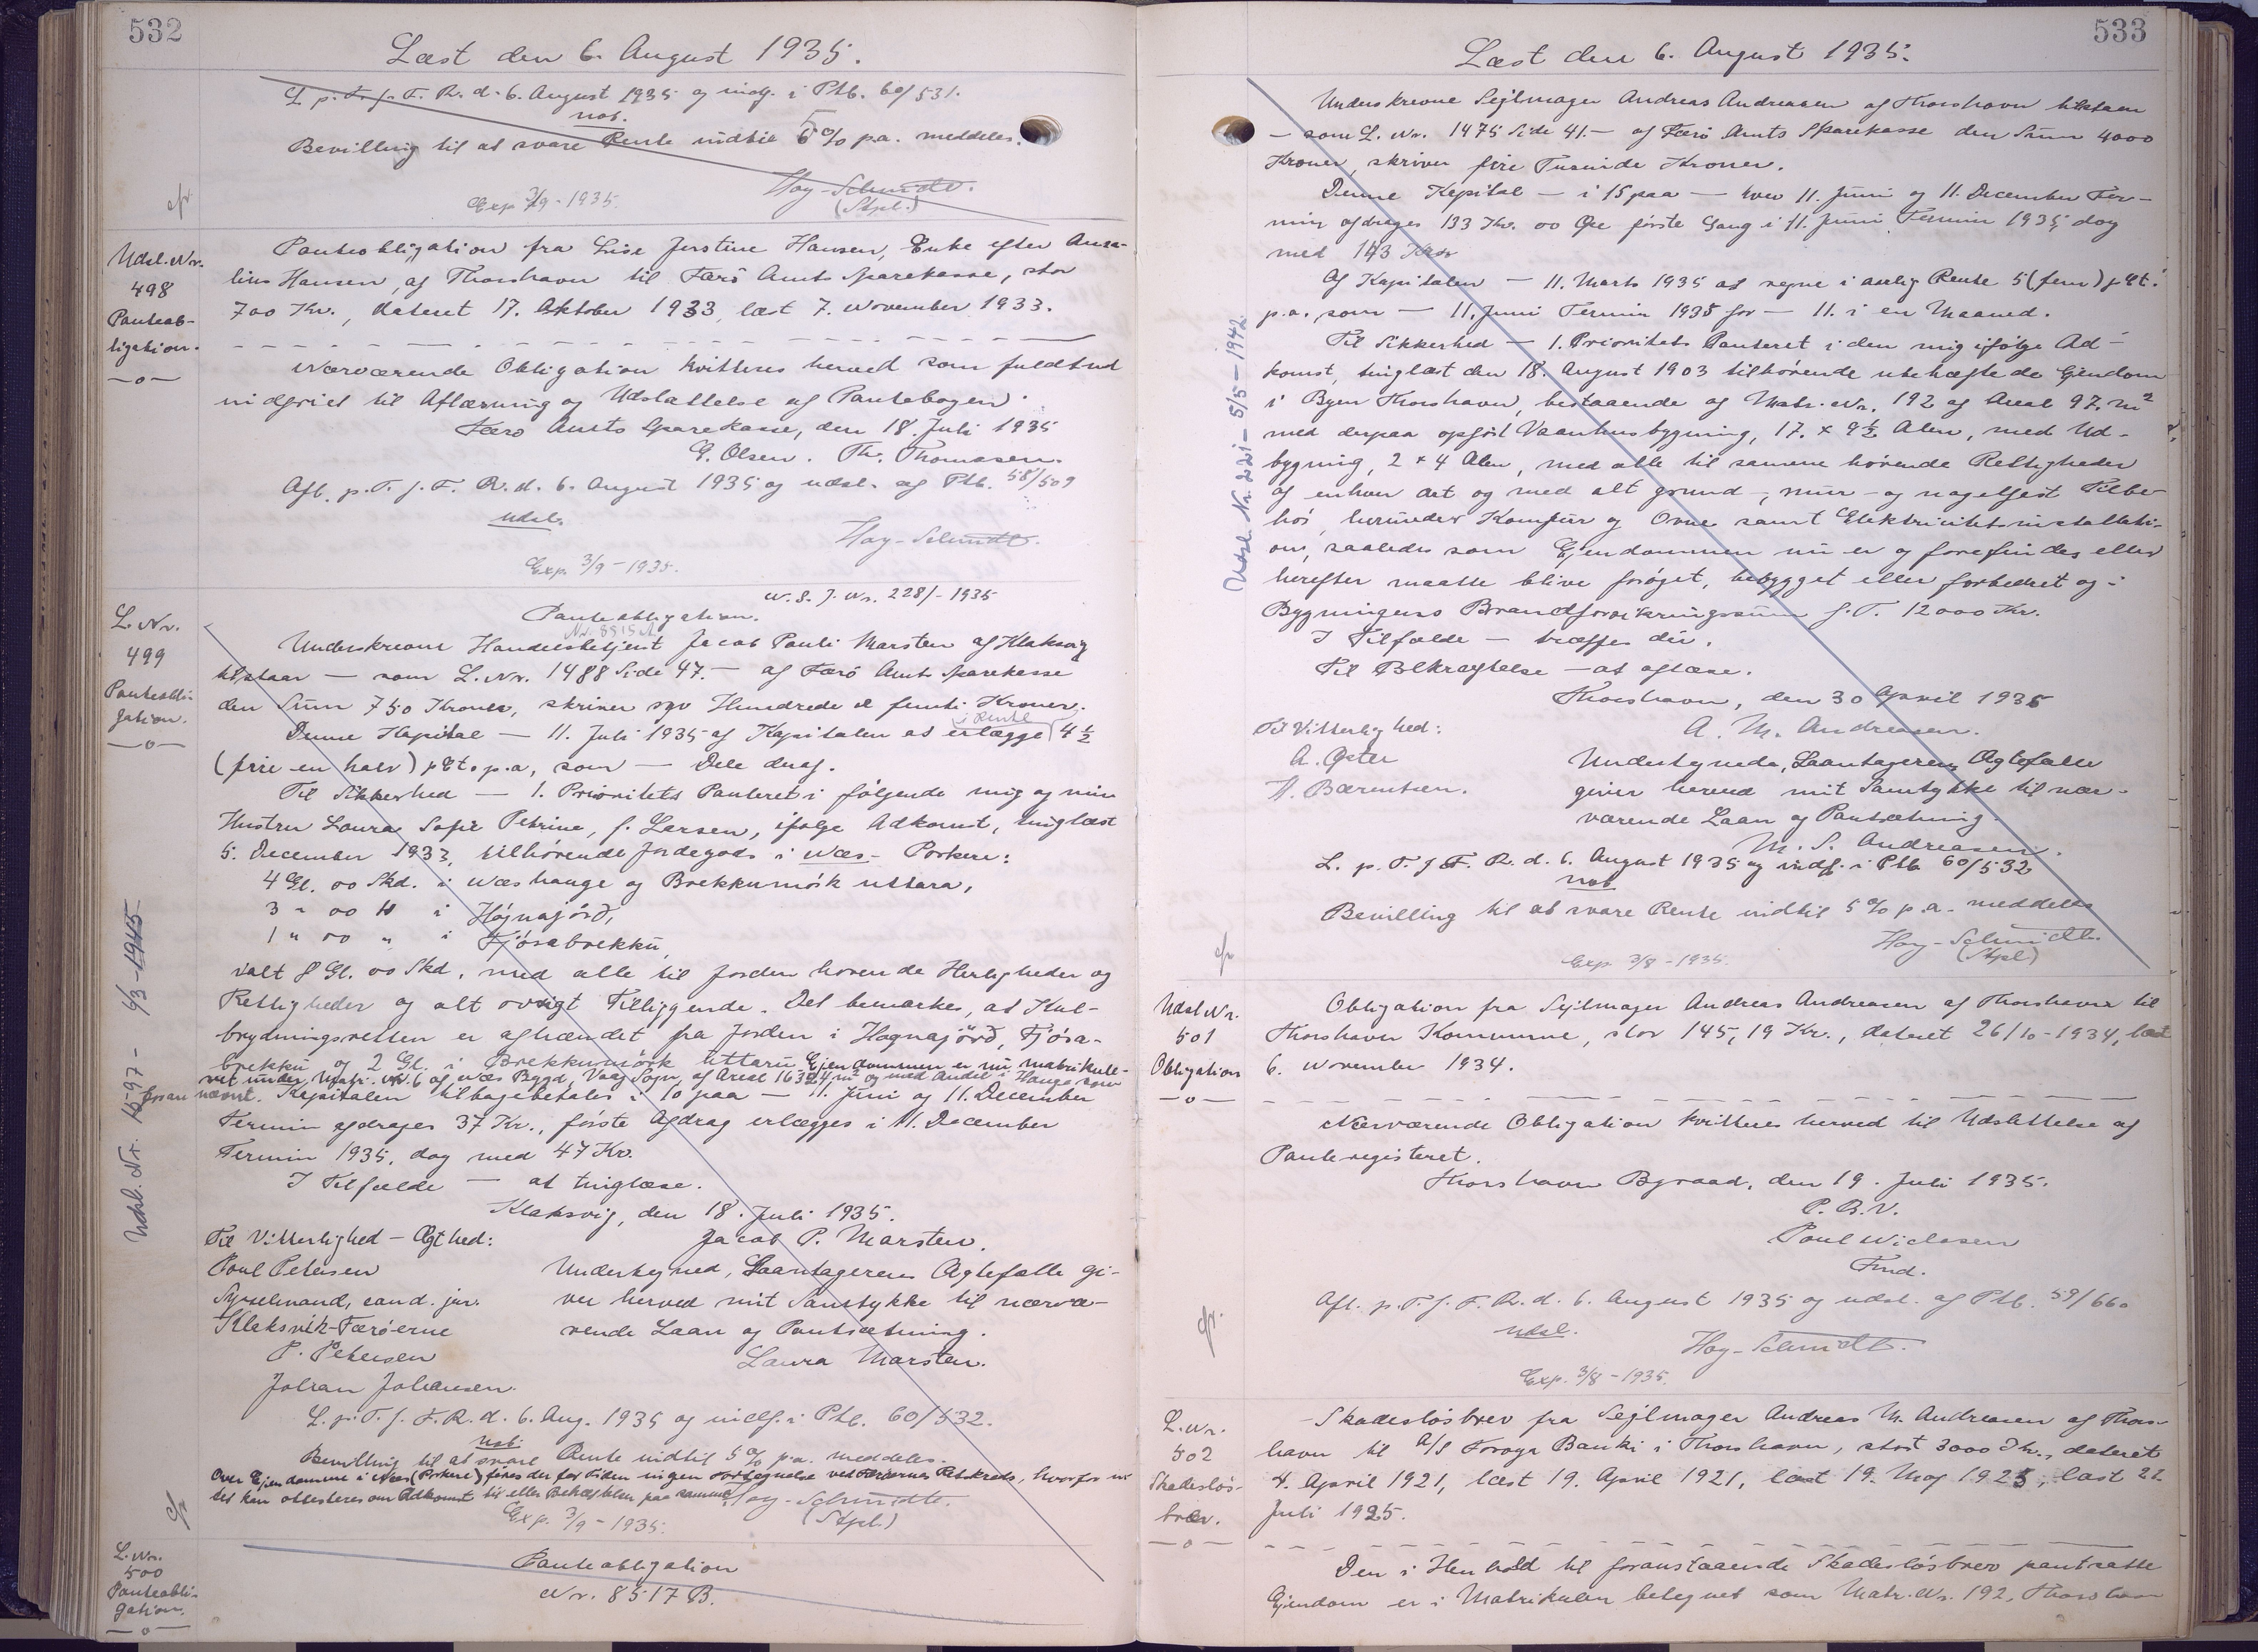 532
Læst den 6. August 1935.
L. p. T. f. F. R. d. 6. August 1935 og indf. i Ptb. 60/531.
not.
Bevilling til at svare Rente indtil 5% p.a. meddeles.
Hoy-Schmidt.
(Stpl.)
Exp. 3/9-1935.
cfr
Udsl. Nr.
498
Panteob-
ligation.
—o—
Panteobligation fra Lise Jerstine Hansen, Enke efter
lius Hansen, af Thorshavn til Færø Amts Sparekasse, stor
700 Kr., dateret 17. Oktober 1933, læst 7. November 1933.
Nærværende Obligation kvitteres herved som fuldtud
indfriet til Aflæsning og Udslettelse af Pantebogen.
Færø Amts Sparekasse, den 18. Juli 1935
E. Olsen. Th. Thomassen.
Afl. p. T. f. F. R. d. 6. August 1935 og udsl. af Ptb. 58/509
udsl.
Hoy-Schmidt.
Exp. 3/9-1935.
L. Nr.
499
Panteobli-
gation.
—o—
N. S. J. Nr. 228/-1935
Panteobligation.
Nr. 8515 A
Underskrevne Handelsbetjent Jacob Pauli Marsten af Klaksvig
tilstaar — som L. Nr. 1488 Side 47. — af Færø Amts Sparekasse
den Sum 750 Kroner, skriver syv Hundrede og femti Kroner.
i Rente
Denne Kapital — 11. Juli 1935 af Kapitalen at erlægge 4½
(fire en halv) pCt. p.a., som — Dele deraf.
Til Sikkerhed — 1. Prioritets Panteret i følgende mig og min
Hustru Laura Sofie Petrine, f. Larsen, ifølge Adkomst, tinglæst
5. December 1933, tilhørende Jordegods i Næs - Porkere:
4 Gl. 00 Skd. i Næshauge og Brekkumörk uttara,
3 " 00 " i Högnajörð,
1 " 00 " i Fjósabrekku,
ialt 8 Gl. 00 Skd. med alle til Jorden hørende Herligheder og
Rettigheder og alt øvrigt Tilliggende. Det bemærkes, at Kul-
brydningsretten er afhændet fra Jorden i Hognajörð, Fjósa-
brekku og 2 Gl. i Brekkumörk uttara. Ejendommen er nu matrikule-
ret under Matr. Nr. 6 af Næs Bygd, Vaag Sogn, af Areal 16324 m² og med Andel i Hauge som
foran nævnt. Kapitalen tilbagebetales i 10 paa — 11. Juni og 11. December
Termin afdrages 37 Kr., første Afdrag erlægges i 11. December
Termin 1935, dog med 47 Kr.
I Tilfælde — at tinglæse.
Klaksvig, den 18. Juli 1935.
Til Vitterlighed - Ægthed:
Jacob P. Marsten.
Poul Petersen
Sysselmand, cand. jur.
Klaksvik-Færøerne
P. Petersen
Johan Johansen.
Undertegned, Laantagerens Ægtefælle gi-
ver herved mit Samtykke til nærvæ-
rende Laan og Pantsætning.
Laura Marsten.
L. p. T. f. F. R. d. 6. Aug. 1935 og indf. i Ptb. 60/532.
not.
Bevilling til at svare Rente indtil 5% p.a. meddeles.
Over Ejendomme i Næs (Porkere) føres der for Tiden ingen Fortegnelse ved Færøernes Retskreds, hvorfor in-
tet kan attesteres om Adkomst til eller Behæftelser paa samme. Hoy-Schmidt.
(Stpl.)
Exp. 3/9-1935.
cfr
Udsl. Nr. 1597 - 6/3-1945
L. Nr.
500
Panteobli-
gation.
—o—
Panteobligation
Nr. 8517 B.
533
Læst den 6. August 1935.
Underskrevne Sejlmager Andreas Andreasen af Thorshavn tilstaar
— som L. Nr. 1475 Side 41. — af Færø Amts Sparekasse den Sum 4000
Kroner, skriver fire Tusinde Kroner.
Denne Kapital — i 15 paa — hver 11. Juni og 11. December Ter-
min afdrages 133 Kr. 00 Øre første Gang i 11. Juni Termin 1935, dog
med 143 Kr.
Af Kapitalen — 11. Marts 1935 at regne i aarlig Rente 5 (fem) pCt.
p.a. som — 11. Juni Termin 1935 for — 11. i en Maaned.
Til Sikkerhed — 1. Prioritets Panteret i den mig ifølge Ad-
komst, tinglæst den 18. August 1903 tilhørende ubehæftede Ejendom
i Byen Thorshavn, bestaaende af Matr. Nr. 192 af Areal 97. m²
med derpaa opført Vaanhusbygning, 17. x 9½ Alen, med Ud-
bygning, 2 x 4 Alen, med alle til samme hørende Rettigheder
af enhver Art og med alt grund-, mur- og nagelfast Tilbe-
hör, herunder Komfur og Ovne samt Elektricitetsinstallati-
on, saaledes som Ejendommen nu er og forefindes eller
herefter maatte blive forøget, bebygget eller forbedret og i
Bygningens Brandforsikringssum f.T. 12000 Kr.
I Tilfælde — træffes der.
Til Bekræftelse — at aflæse.
Thorshavn, den 30 April 1935
Til Vitterlighed:
A. M. Andreasen.
A. Øster
H. Bærentsen.
Undertegnede, Laantagerens Ægtefælle
giver herved mit Samtykke til nær-
værende Laan og Pantsætning.
M. S. Andreasen.
L. p. T. f. F. R. d. 6. August 1935 og indf. i Ptb. 60/532
not
Bevilling til at svare Rente indtil 5% p.a. meddeles
Hoy-Schmidt.
(Stpl)
Exp. 3/8-1935.
cfr
Udsl. Nr. 221 - 5/5-1942.
Udsl Nr.
501
Obligation
—o—
Obligation fra Sejlmager Andreas Andreasen af Thorshavn til
Thorshavn Kommune, stor 145,19 Kr., dateret 26/10-1934, læst
6. November 1934.
Nærværende Obligation kvitteres herved til Udslettelse af
Panteregisteret.
Thorshavn Byraad, den 19. Juli 1935.
P. B. V.
Poul Niclasen
Fmd.
Afl. p. T. f. F. R. d. 6. August 1935 og udsl. af Ptb. 59/660
udsl.
Hoy-Schmidt.
Exp. 3/8-1935.
cfr.
L. Nr.
502
Skadesløs-
brev.
—o—
Skadesløsbrev fra Sejlmager Andreas M. Andreasen af Thors-
havn til A/S Føroya Banki i Thorshavn, stort 3000 Kr., dateret
4. April 1921, læst 19. April 1921, læst 19. Maj 1925, læst 22.
Juli 1925.
Den i Henhold til foranstaaende Skadesløsbrev pantsatte
Ejendom er i Matrikulen betegnet som Matr. Nr. 192, Thorshavn